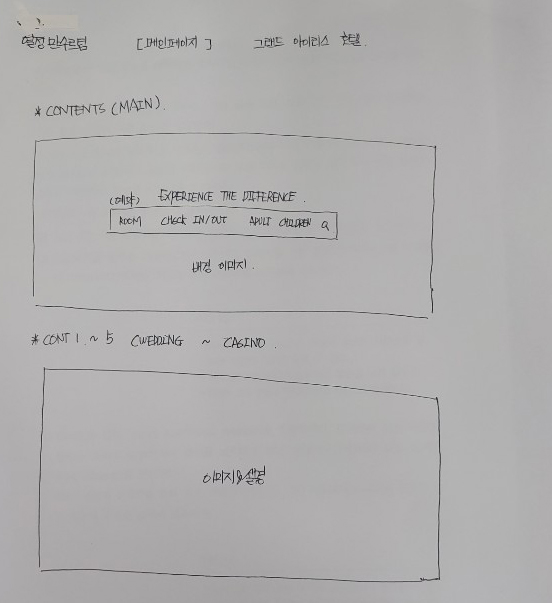 열정만수르팀 [메인페이지] 그랜드 아이리스 호텔.
* CONTENTS (MAIN).
(예약) EXPERIENCE THE DIFFERENCE.
ROOM CHECK IN/OUT ADULT CHILDREN
배경 이미지.
* CONT 1. ~ 5 (WEDDING ~ CASINO.
이미지&설명